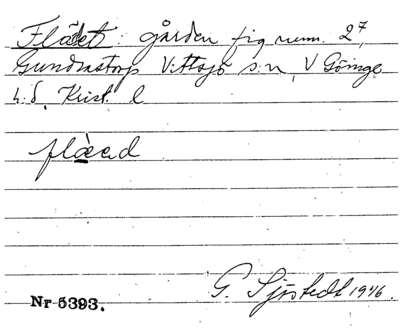 Flädet: gården fig num. 2⁷,
Gundrastorp Vittsjö s:n, V Göinge
h:d, Krist. l
flàed
G. Sjöstedt 1946.
Nr 5393.